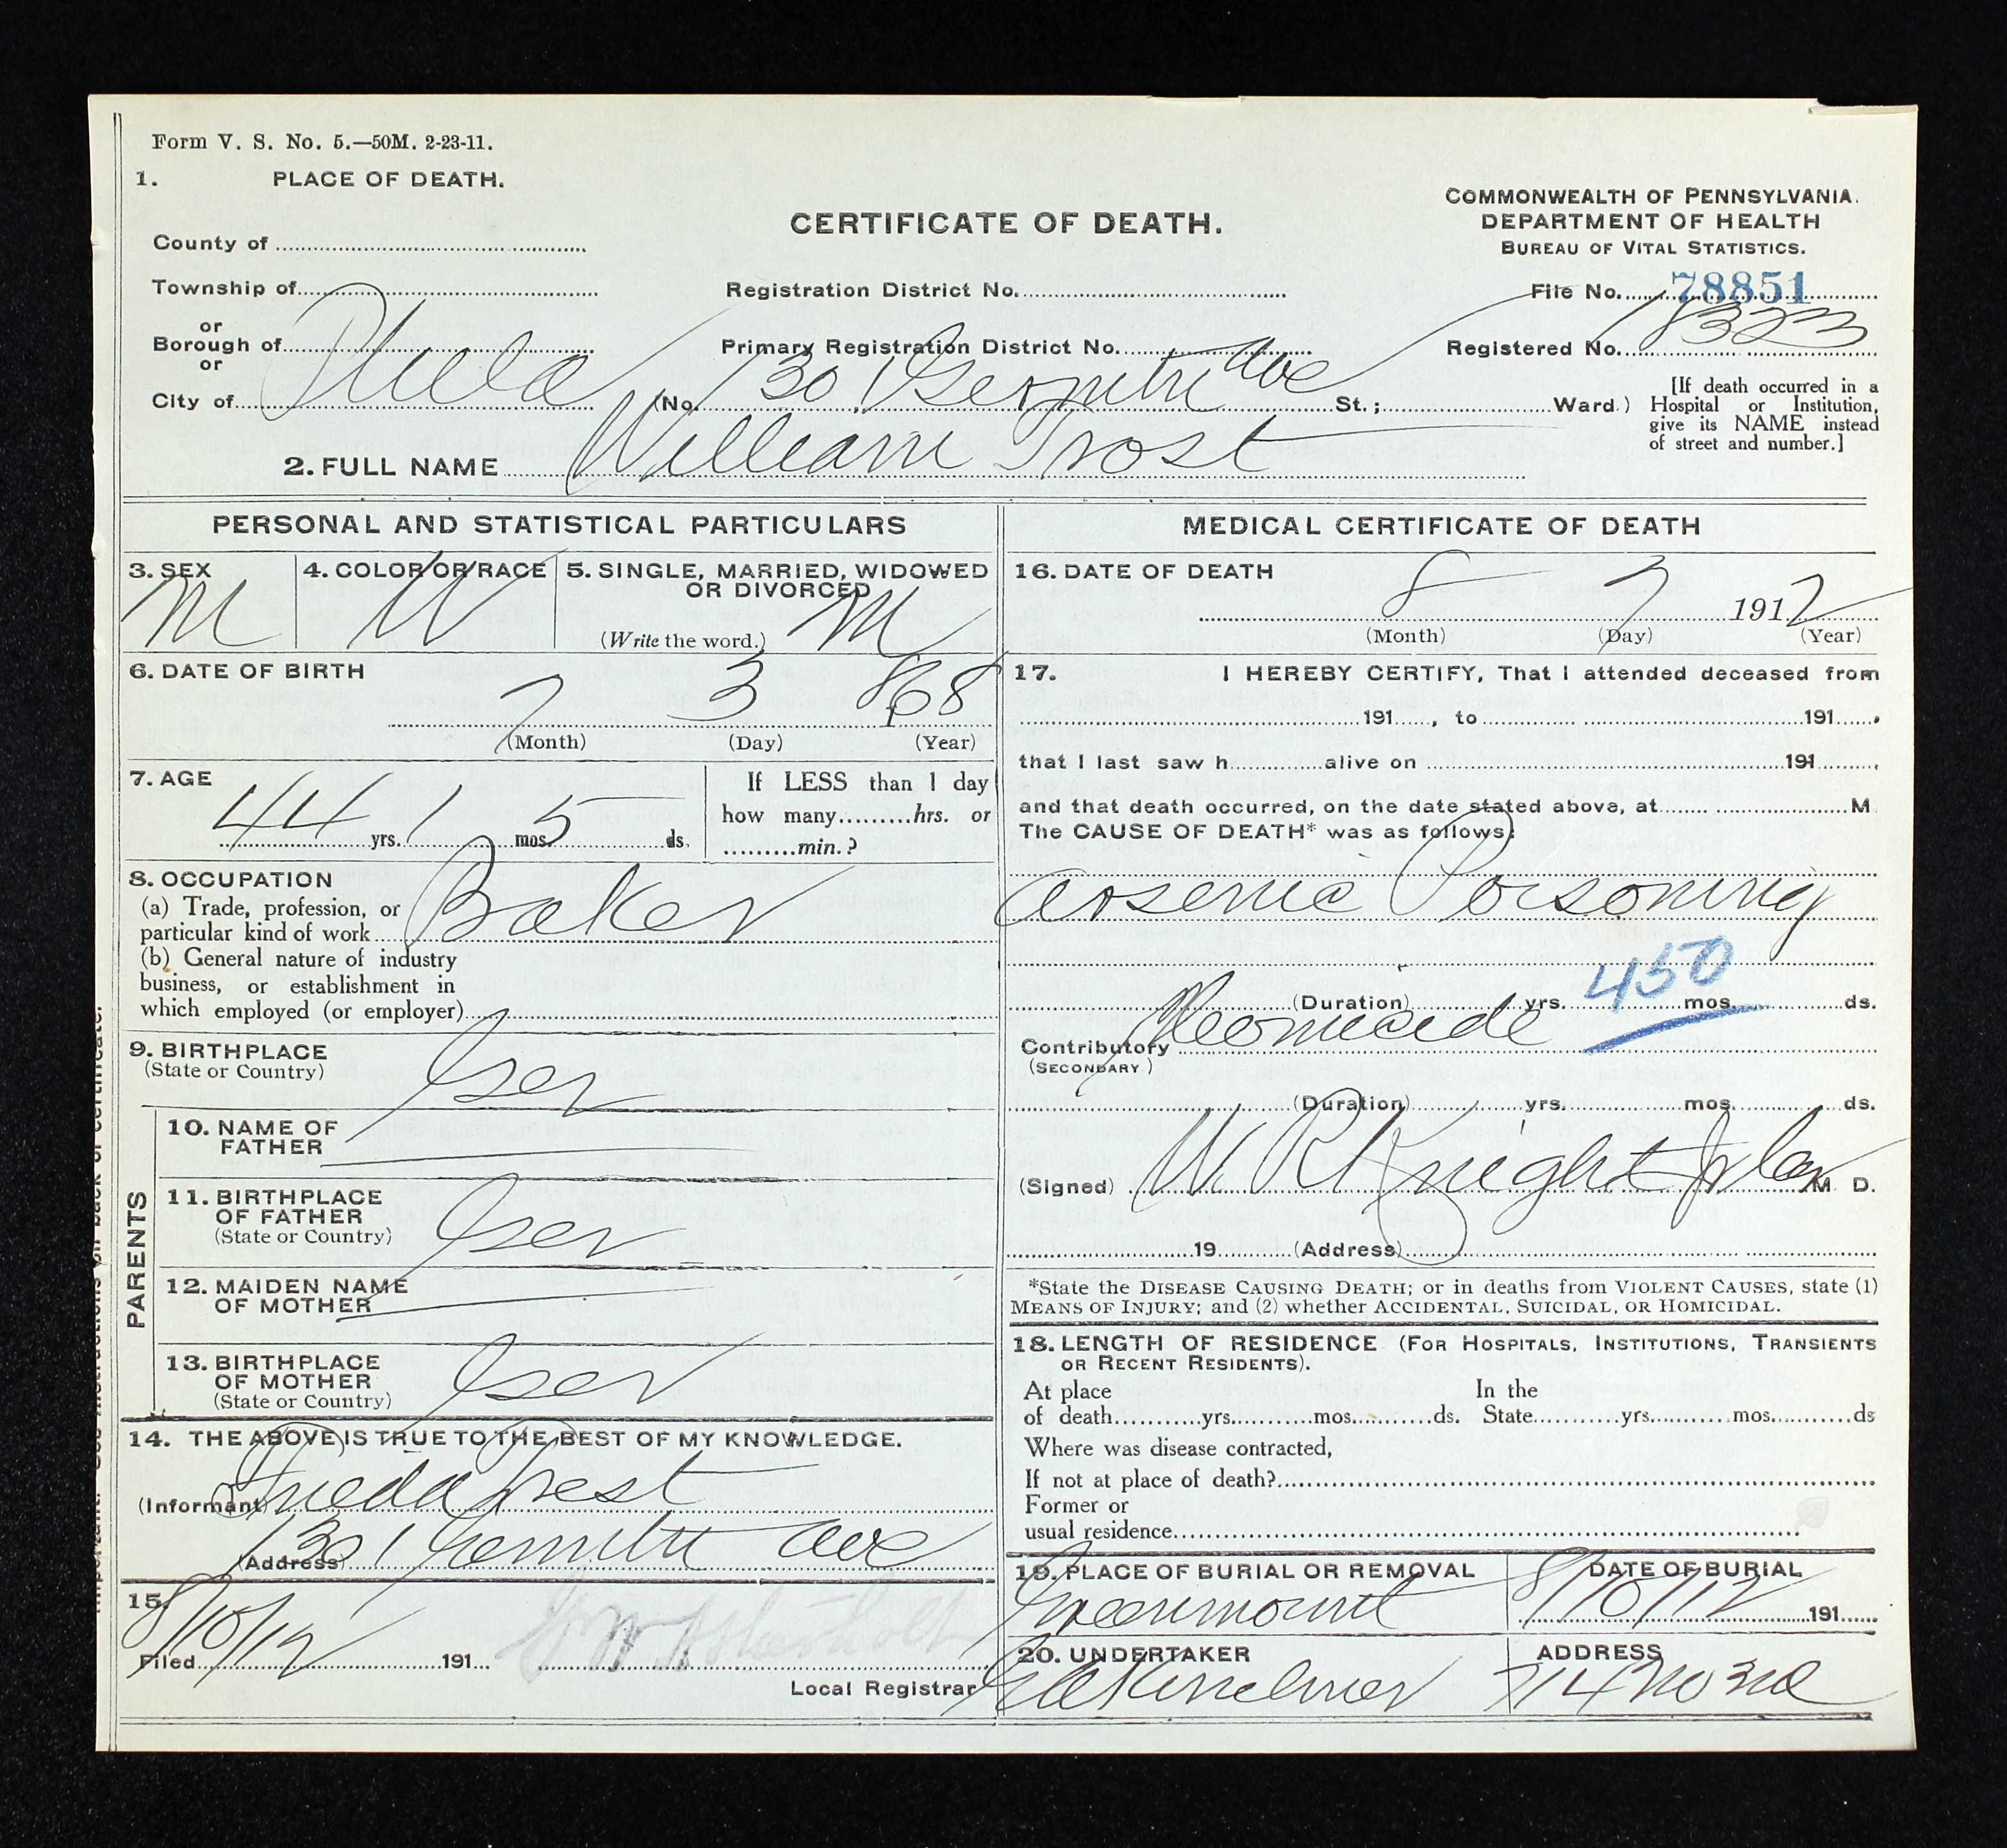 Form V. S. No. 5.—50M. 2-23-11.
1. PLACE OF DEATH.
COMMONWEALTH OF PENNSYLVANIA.
CERTIFICATE OF DEATH.
DEPARTMENT OF HEALTH
BUREAU OF VITAL STATISTICS.
County of
Township of
Registration District No.
File No. 78851
or
Borough of
Primary Registration District No.
Registered No. 18323
or
City of Phila (No. 1301 Ave St.; Ward.)
[If death occurred in a Hospital or Institution, give its NAME instead of street and number.]
2. FULL NAME William Trost
PERSONAL AND STATISTICAL PARTICULARS
3. SEX M
4. COLOR OR RACE W
5. SINGLE, MARRIED, WIDOWED OR DIVORCED
(Write the word.) M
6. DATE OF BIRTH
7 3 868
(Month) (Day) (Year)
7. AGE
44 yrs. 1 mos. 5 ds.
If LESS than 1 day
how many hrs. or
min.?
8. OCCUPATION
(a) Trade, profession, or
particular kind of work Baker
(b) General nature of industry
business, or establishment in
which employed (or employer)
9. BIRTHPLACE
(State or Country) Ger
PARENTS
10. NAME OF
FATHER
11. BIRTHPLACE
OF FATHER
(State or Country) Ger
12. MAIDEN NAME
OF MOTHER
13. BIRTHPLACE
OF MOTHER
(State or Country) Ger
14. THE ABOVE IS TRUE TO THE BEST OF MY KNOWLEDGE.
(Informant) Frieda Trost
(Address) 1301 Ave
15.
Filed 8/10/12 191
Local Registrar
MEDICAL CERTIFICATE OF DEATH
16. DATE OF DEATH
8 7 1912
(Month) (Day) (Year)
17. I HEREBY CERTIFY, That I attended deceased from
191 , to 191 .
that I last saw h alive on 191 ,
and that death occurred, on the date stated above, at M
The CAUSE OF DEATH* was as follows:
Arsenic Poisoning
450
(Duration) yrs. mos. ds.
Contributory Homicide
(SECONDARY)
(Duration) yrs. mos. ds.
(Signed) W. R. Knight Jr M. D.
19 (Address)
*State the DISEASE CAUSING DEATH; or in deaths from VIOLENT CAUSES, state (1)
MEANS OF INJURY; and (2) whether ACCIDENTAL, SUICIDAL, OR HOMICIDAL.
18. LENGTH OF RESIDENCE (FOR HOSPITALS, INSTITUTIONS, TRANSIENTS
OR RECENT RESIDENTS).
At place In the
of death yrs. mos. ds. State yrs. mos. ds
Where was disease contracted,
If not at place of death?
Former or
usual residence
19. PLACE OF BURIAL OR REMOVAL
Greenmount
DATE OF BURIAL
8/10/12 191
20. UNDERTAKER
ADDRESS
714 No 3rd